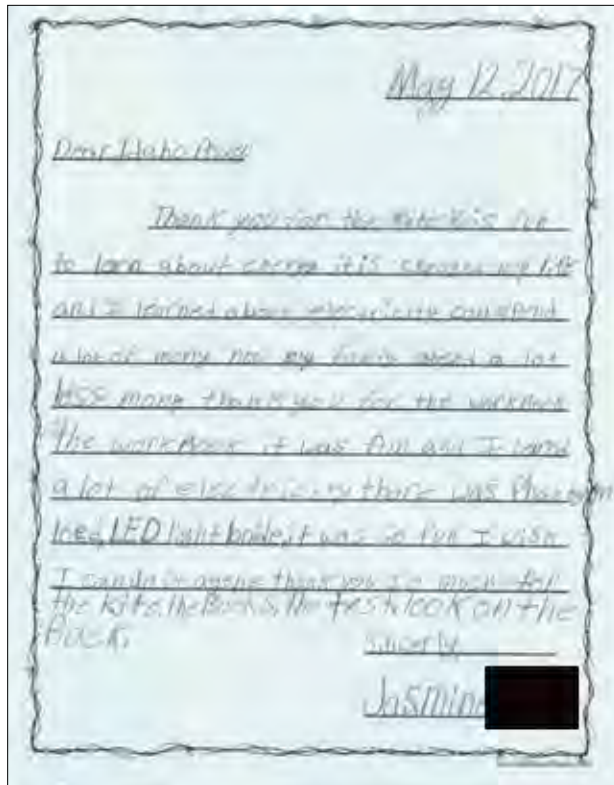 May 12, 2017
Dear Idaho Power
Thank you for the kits it is fun
to learn about energy it is changed my life
and I learned about electricity can spend
a lot of mony now my family spend a lot
less mony thank you for the workbook
the workbook it was fun and I larnd
a lot of electricity there was Phantom
load, LED light it was so fun I wish
I can do it agene thank you so much for
the kits, the Books, the test. look on the
back.
Sincerly
Jasmine